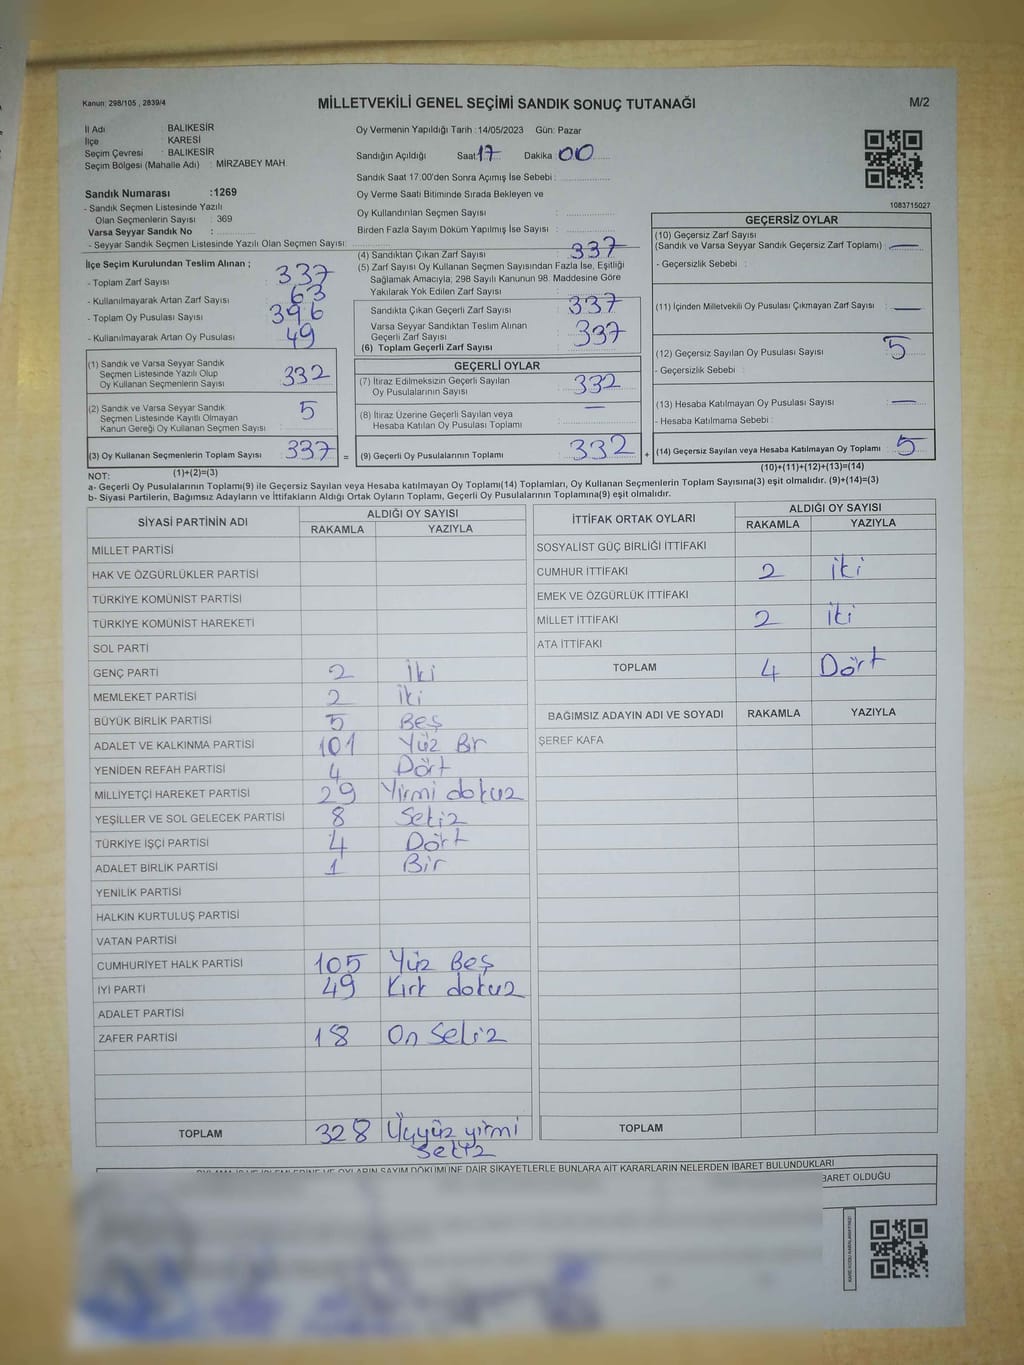 Kanun: 298/105 , 2839/4
MİLLETVEKİLİ GENEL SEÇİMİ SANDIK SONUÇ TUTANAĞI
M/2
İl Adı : BALIKESİR
İlçe : KARESİ
Seçim Çevresi : BALIKESİR
Seçim Bölgesi (Mahalle Adı) : MİRZABEY MAH.
Sandık Numarası :1269
- Sandık Seçmen Listesinde Yazılı
Olan Seçmenlerin Sayısı : 369
Varsa Seyyar Sandık No :
- Seyyar Sandık Seçmen Listesinde Yazılı Olan Seçmen Sayısı:
Oy Vermenin Yapıldığı Tarih :14/05/2023 Gün: Pazar
Sandığın Açıldığı Saat 17 Dakika 00
Sandık Saat 17:00'den Sonra Açımış İse Sebebi :
Oy Verme Saati Bitiminde Sırada Bekleyen ve
Oy Kullandırılan Seçmen Sayısı :
Birden Fazla Sayım Döküm Yapılmış İse Sayısı :
1083715027
İlçe Seçim Kurulundan Teslim Alınan ;
- Toplam Zarf Sayısı : 337
- Kullanılmayarak Artan Zarf Sayısı : 63
- Toplam Oy Pusulası Sayısı : 396
- Kullanılmayarak Artan Oy Pusulası : 49
(1) Sandık ve Varsa Seyyar Sandık
Seçmen Listesinde Yazılı Olup
Oy Kullanan Seçmenlerin Sayısı : 332
(2) Sandık ve Varsa Seyyar Sandık
Seçmen Listesinde Kayıtlı Olmayan
Kanun Gereği Oy Kullanan Seçmen Sayısı : 5
(3) Oy Kullanan Seçmenlerin Toplam Sayısı : 337 =
(1)+(2)=(3)
(4) Sandıktan Çıkan Zarf Sayısı : 337
(5) Zarf Sayısı Oy Kullanan Seçmen Sayısından Fazla İse, Eşitliği
Sağlamak Amacıyla; 298 Sayılı Kanunun 98. Maddesine Göre
Yakılarak Yok Edilen Zarf Sayısı :
Sandıkta Çıkan Geçerli Zarf Sayısı : 337
Varsa Seyyar Sandıktan Teslim Alınan
Geçerli Zarf Sayısı : 337
(6) Toplam Geçerli Zarf Sayısı :
GEÇERLİ OYLAR
(7) İtiraz Edilmeksizin Geçerli Sayılan
Oy Pusulalarının Sayısı : 332
(8) İtiraz Üzerine Geçerli Sayılan veya
Hesaba Katılan Oy Pusulası Toplamı : —
(9) Geçerli Oy Pusulalarının Toplamı : 332 +
GEÇERSİZ OYLAR
(10) Geçersiz Zarf Sayısı
(Sandık ve Varsa Seyyar Sandık Geçersiz Zarf Toplamı) : —
- Geçersizlik Sebebi :
(11) İçinden Milletvekili Oy Pusulası Çıkmayan Zarf Sayısı : —
(12) Geçersiz Sayılan Oy Pusulası Sayısı : 5
- Geçersizlik Sebebi :
(13) Hesaba Katılmayan Oy Pusulası Sayısı : —
- Hesaba Katılmama Sebebi :
(14) Geçersiz Sayılan veya Hesaba Katılmayan Oy Toplamı : 5
(10)+(11)+(12)+(13)=(14)
NOT:
a- Geçerli Oy Pusulalarının Toplamı(9) ile Geçersiz Sayılan veya Hesaba katılmayan Oy Toplamı(14) Toplamları, Oy Kullanan Seçmenlerin Toplam Sayısına(3) eşit olmalıdır. (9)+(14)=(3)
b- Siyasi Partilerin, Bağımsız Adayların ve İttifakların Aldığı Ortak Oyların Toplamı, Geçerli Oy Pusulalarının Toplamına(9) eşit olmalıdır.
SİYASİ PARTİNİN ADI ALDIĞI OY SAYISI
RAKAMLA YAZIYLA
MİLLET PARTİSİ
HAK VE ÖZGÜRLÜKLER PARTİSİ
TÜRKİYE KOMÜNİST PARTİSİ
TÜRKİYE KOMÜNİST HAREKETİ
SOL PARTİ
GENÇ PARTİ 2 İki
MEMLEKET PARTİSİ 2 İki
BÜYÜK BİRLİK PARTİSİ 5 Beş
ADALET VE KALKINMA PARTİSİ 101 Yüz Bir
YENİDEN REFAH PARTİSİ 4 Dört
MİLLİYETÇİ HAREKET PARTİSİ 29 Yirmi dokuz
YEŞİLLER VE SOL GELECEK PARTİSİ 8 Sekiz
TÜRKİYE İŞÇİ PARTİSİ 4 Dört
ADALET BİRLİK PARTİSİ 1 Bir
YENİLİK PARTİSİ
HALKIN KURTULUŞ PARTİSİ
VATAN PARTİSİ
CUMHURİYET HALK PARTİSİ 105 Yüz Beş
İYİ PARTİ 49 Kırk dokuz
ADALET PARTİSİ
ZAFER PARTİSİ 18 On Sekiz
TOPLAM 328 Üçyüz yirmi
sekiz
İTTİFAK ORTAK OYLARI ALDIĞI OY SAYISI
RAKAMLA YAZIYLA
SOSYALİST GÜÇ BİRLİĞİ İTTİFAKI
CUMHUR İTTİFAKI 2 iki
EMEK VE ÖZGÜRLÜK İTTİFAKI
MİLLET İTTİFAKI 2 iki
ATA İTTİFAKI
TOPLAM 4 Dört
BAĞIMSIZ ADAYIN ADI VE SOYADI RAKAMLA YAZIYLA
ŞEREF KAFA
TOPLAM
OYLAMA İŞ VE İŞLEMLERİNE VE OYLARIN SAYIM DÖKÜMÜNE DAİR ŞİKAYETLERLE BUNLARA AİT KARARLARIN NELERDEN İBARET BULUNDUKLARI
İBARET OLDUĞU